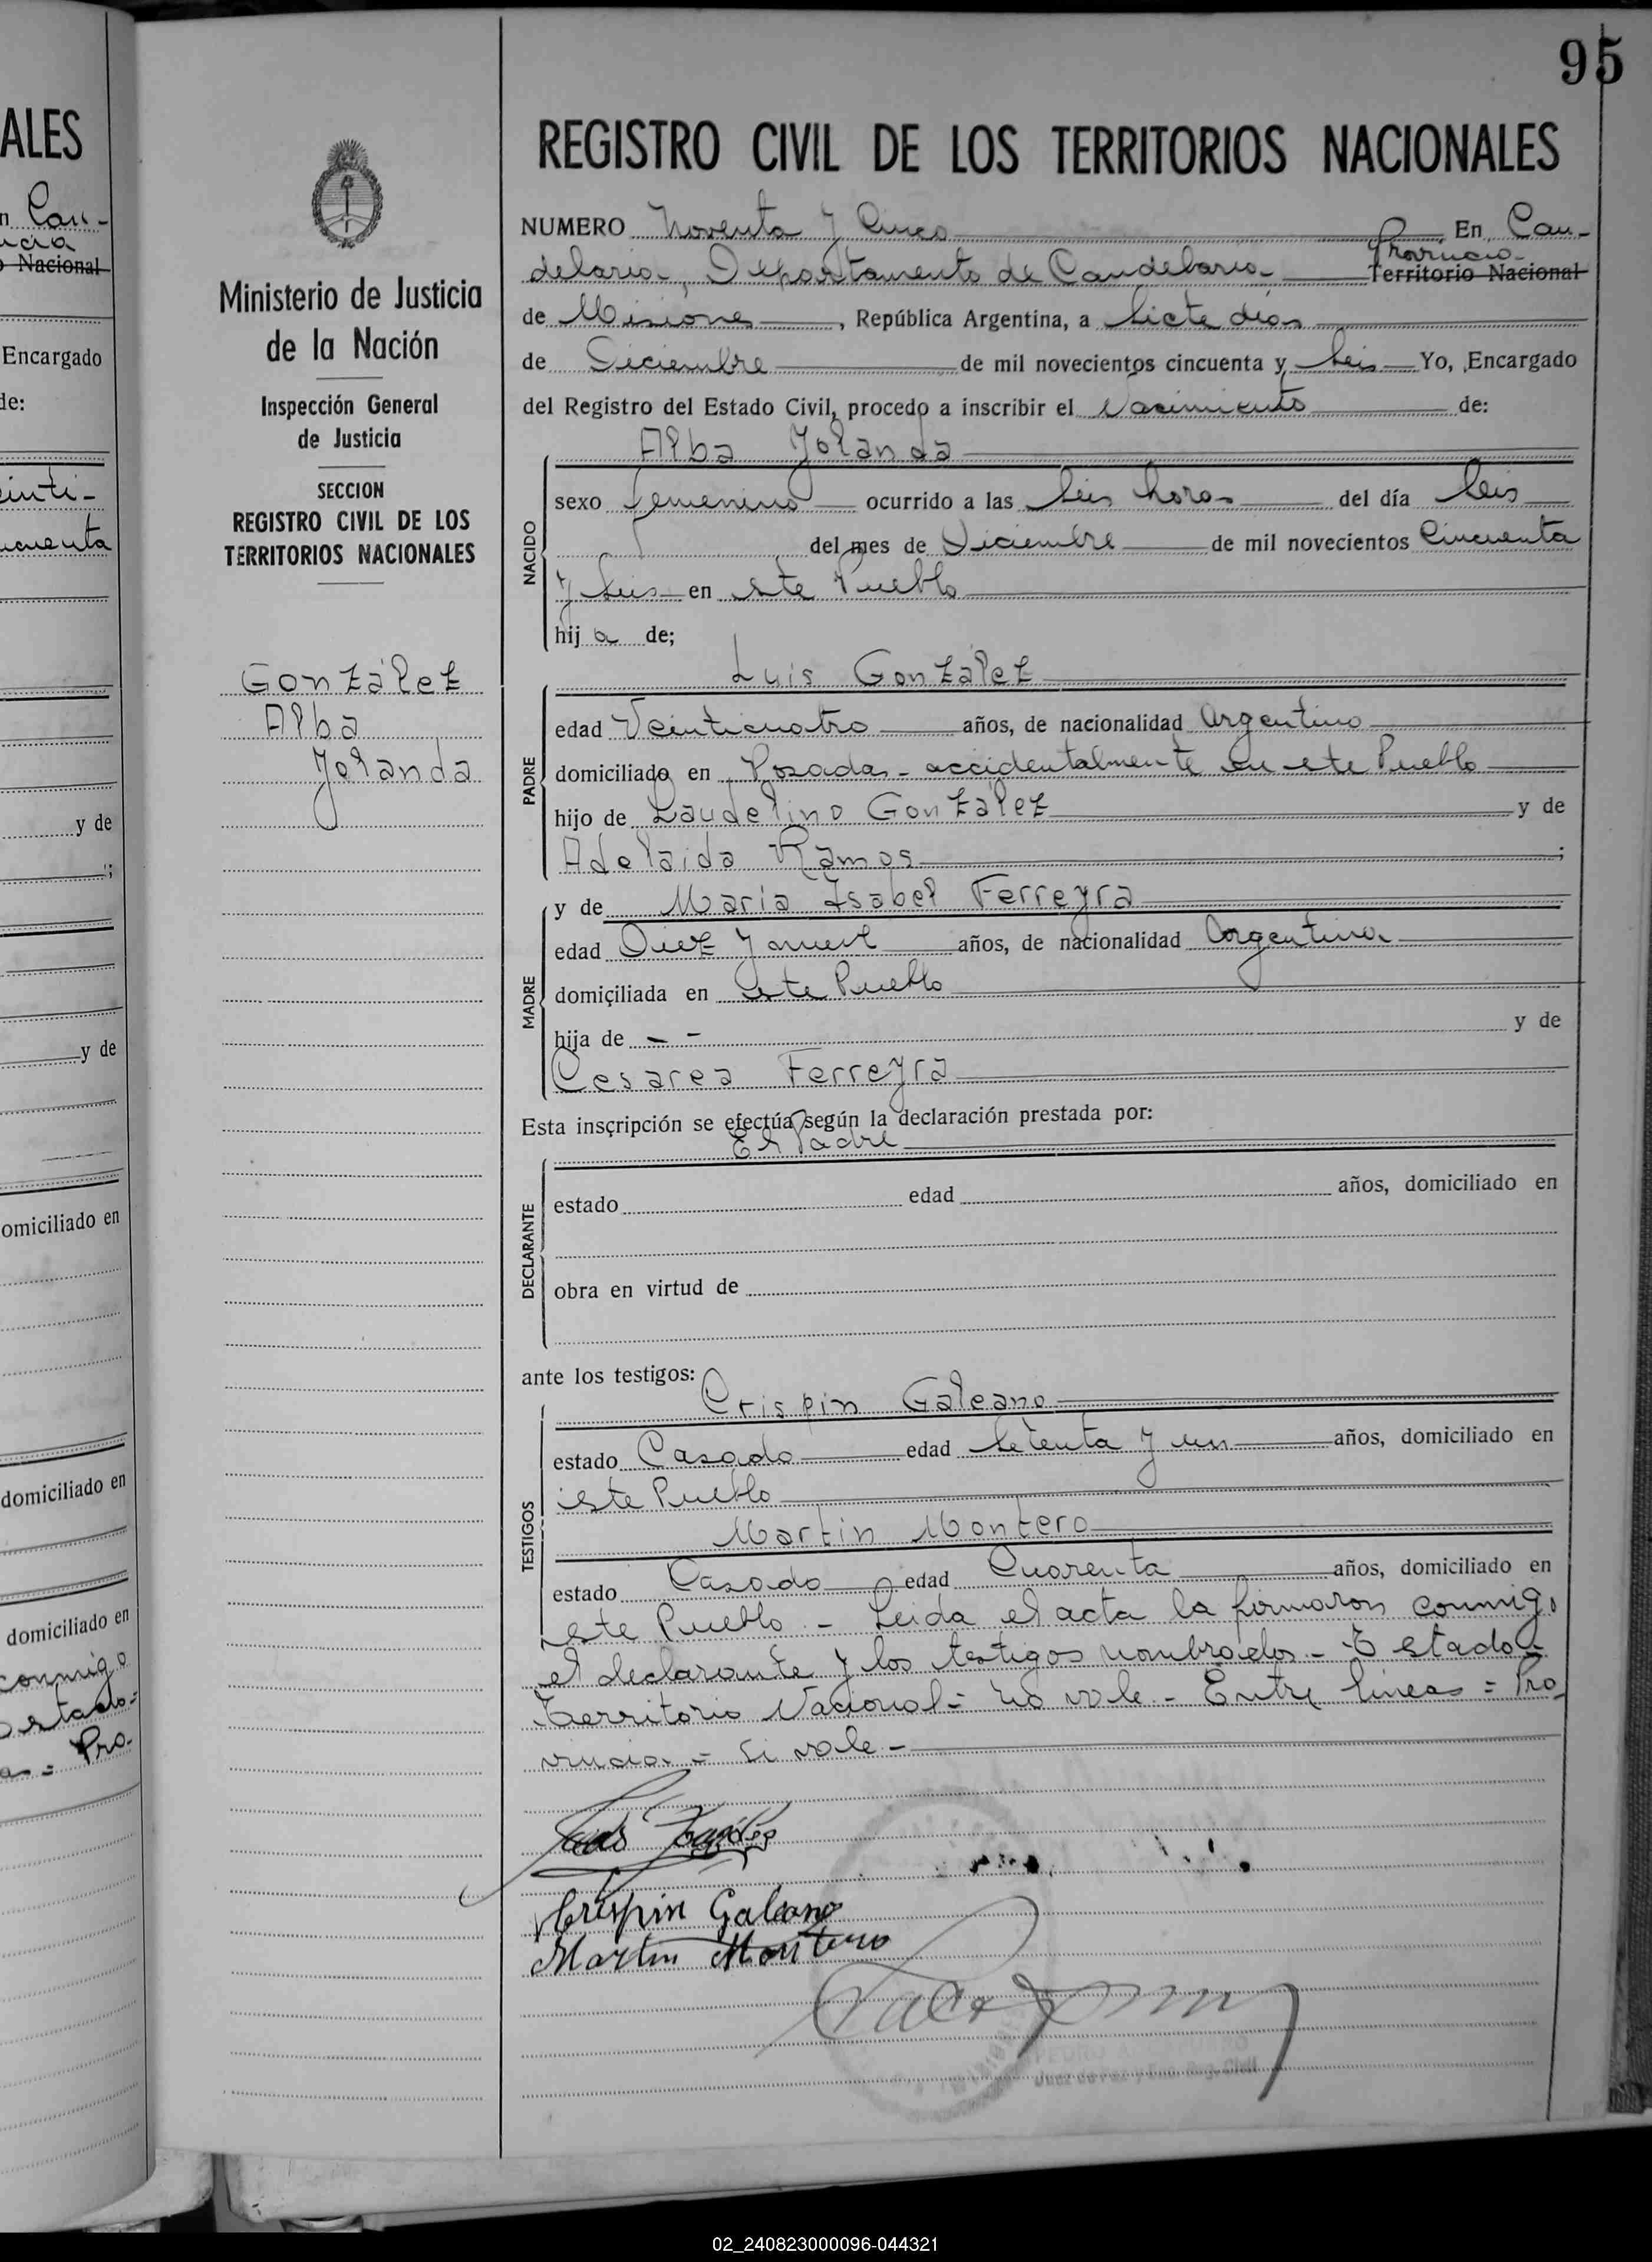 95
ALES
REGISTRO CIVIL DE LOS TERRITORIOS NACIONALES
Ministerio de Justicia
de la Nación
Inspección General
de Justicia
SECCION
REGISTRO CIVIL DE LOS
TERRITORIOS NACIONALES
González
Alba
Yolanda
NUMERO Noventa y Cinco En Can-
delaria, Departamento de Candelaria Provincia
Territorio Nacional
de Misiones, República Argentina, a Siete días
de Diciembre de mil novecientos cincuenta y Seis Yo, Encargado
del Registro del Estado Civil, procedo a inscribir el Nacimiento de:
Alba Yolanda
NACIDO
sexo femenino ocurrido a las Seis horas del día Seis
del mes de Diciembre de mil novecientos Cincuenta
y Seis en este Pueblo
hij a de;
Luis González
PADRE
edad Veinticuatro años, de nacionalidad Argentino
domiciliado en Posadas - accidentalmente en este Pueblo
hijo de Laudelino González y de
Adelaida Ramos ;
MADRE
y de María Isabel Ferreyra
edad Diez y nueve años, de nacionalidad Argentina
domiciliada en este Pueblo
hija de - - y de
Cesarea Ferreyra
Esta inscripción se efectúa según la declaración prestada por:
El Padre
DECLARANTE
estado edad años, domiciliado en
obra en virtud de
ante los testigos:
Crispin Galeano
TESTIGOS
estado Casado edad Setenta y un años, domiciliado en
este Pueblo
Martin Montero
estado Casado edad Cuarenta años, domiciliado en
este Pueblo - Leida el acta la firmaron conmigo
el declarante y los testigos nombrados - Testado=
Territorio Nacional = no vale - Entre lineas = Pro-
vincia = Si vale -
Crispin Galeano
Martin Montero
Juez de Paz y Enc. Reg. Civil
n Can-
ncia
o Nacional
Encargado
de:
einti-
ncuenta
y de
y de
omiciliado en
domiciliado en
domiciliado en
conmigo
estado=
a = Pro-
02_240823000096-044321